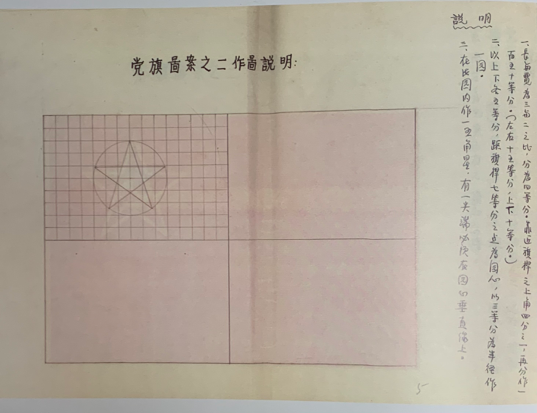 説明
党旗圖案之二作圖説明:
一、長與寬為三與二之比,分為四等分。靠近旗桿之上角四分之一,再分作一
百五十等分。(左右十五等分,上下十等分。)
二、以上下各五等分,距旗桿七等分之点為圓心,以三等分為半徑作
一圓。
三、在此圓內作一五角星,有一尖端必須在圓心垂直綫上。
5